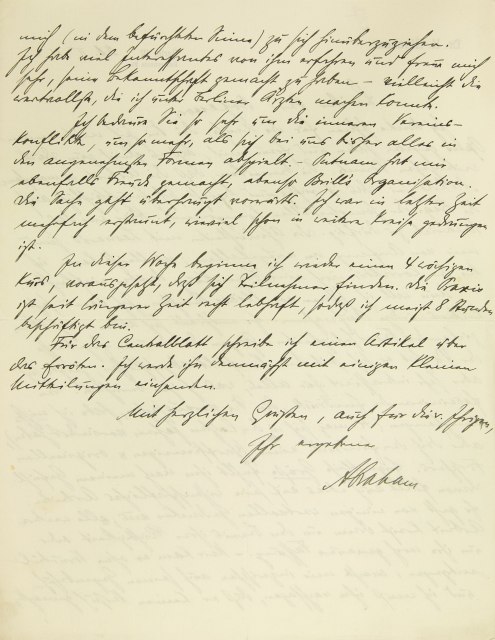 mich (in dem befürchteten Sinne) zu sich hinüberzuziehen.
Ich habe viel Interessantes von ihm erfahren und freue mich
sehr, seine Bekanntschaft gemacht zu haben – vielleicht die
wertvollste, die ich unter Berliner Ärzten machen konnte.
Ich bedaure Sie so sehr um die inneren Vereins-
konflikte, um so mehr, als sich bei uns bisher alles in
den angenehmsten Formen abspielt. – Putnam hat mir
ebenfalls Freude gemacht, ebenso Brill's Organisation.
Die Sache geht überhaupt vorwärts. Ich war in letzter Zeit
mehrfach erstaunt, wieviel schon in weitere Kreise gedrungen
ist.
In dieser Woche beginne ich wieder einen 4 wöchigen
Kurs, vorausgesetzt, daß sich Teilnehmer finden. Die Praxis
ist seit längerer Zeit recht lebhaft, sodaß ich meist 8 Stunden
beschäftigt bin.
Für das Centralblatt schreibe ich einen Artikel über
das Erröten. Ich werde ihn demnächst mit einigen kleinen
Mitteilungen einsenden.
Mit herzlichen Grüßen, auch für die v. Ihrigen,
Ihr ergebener
Abraham